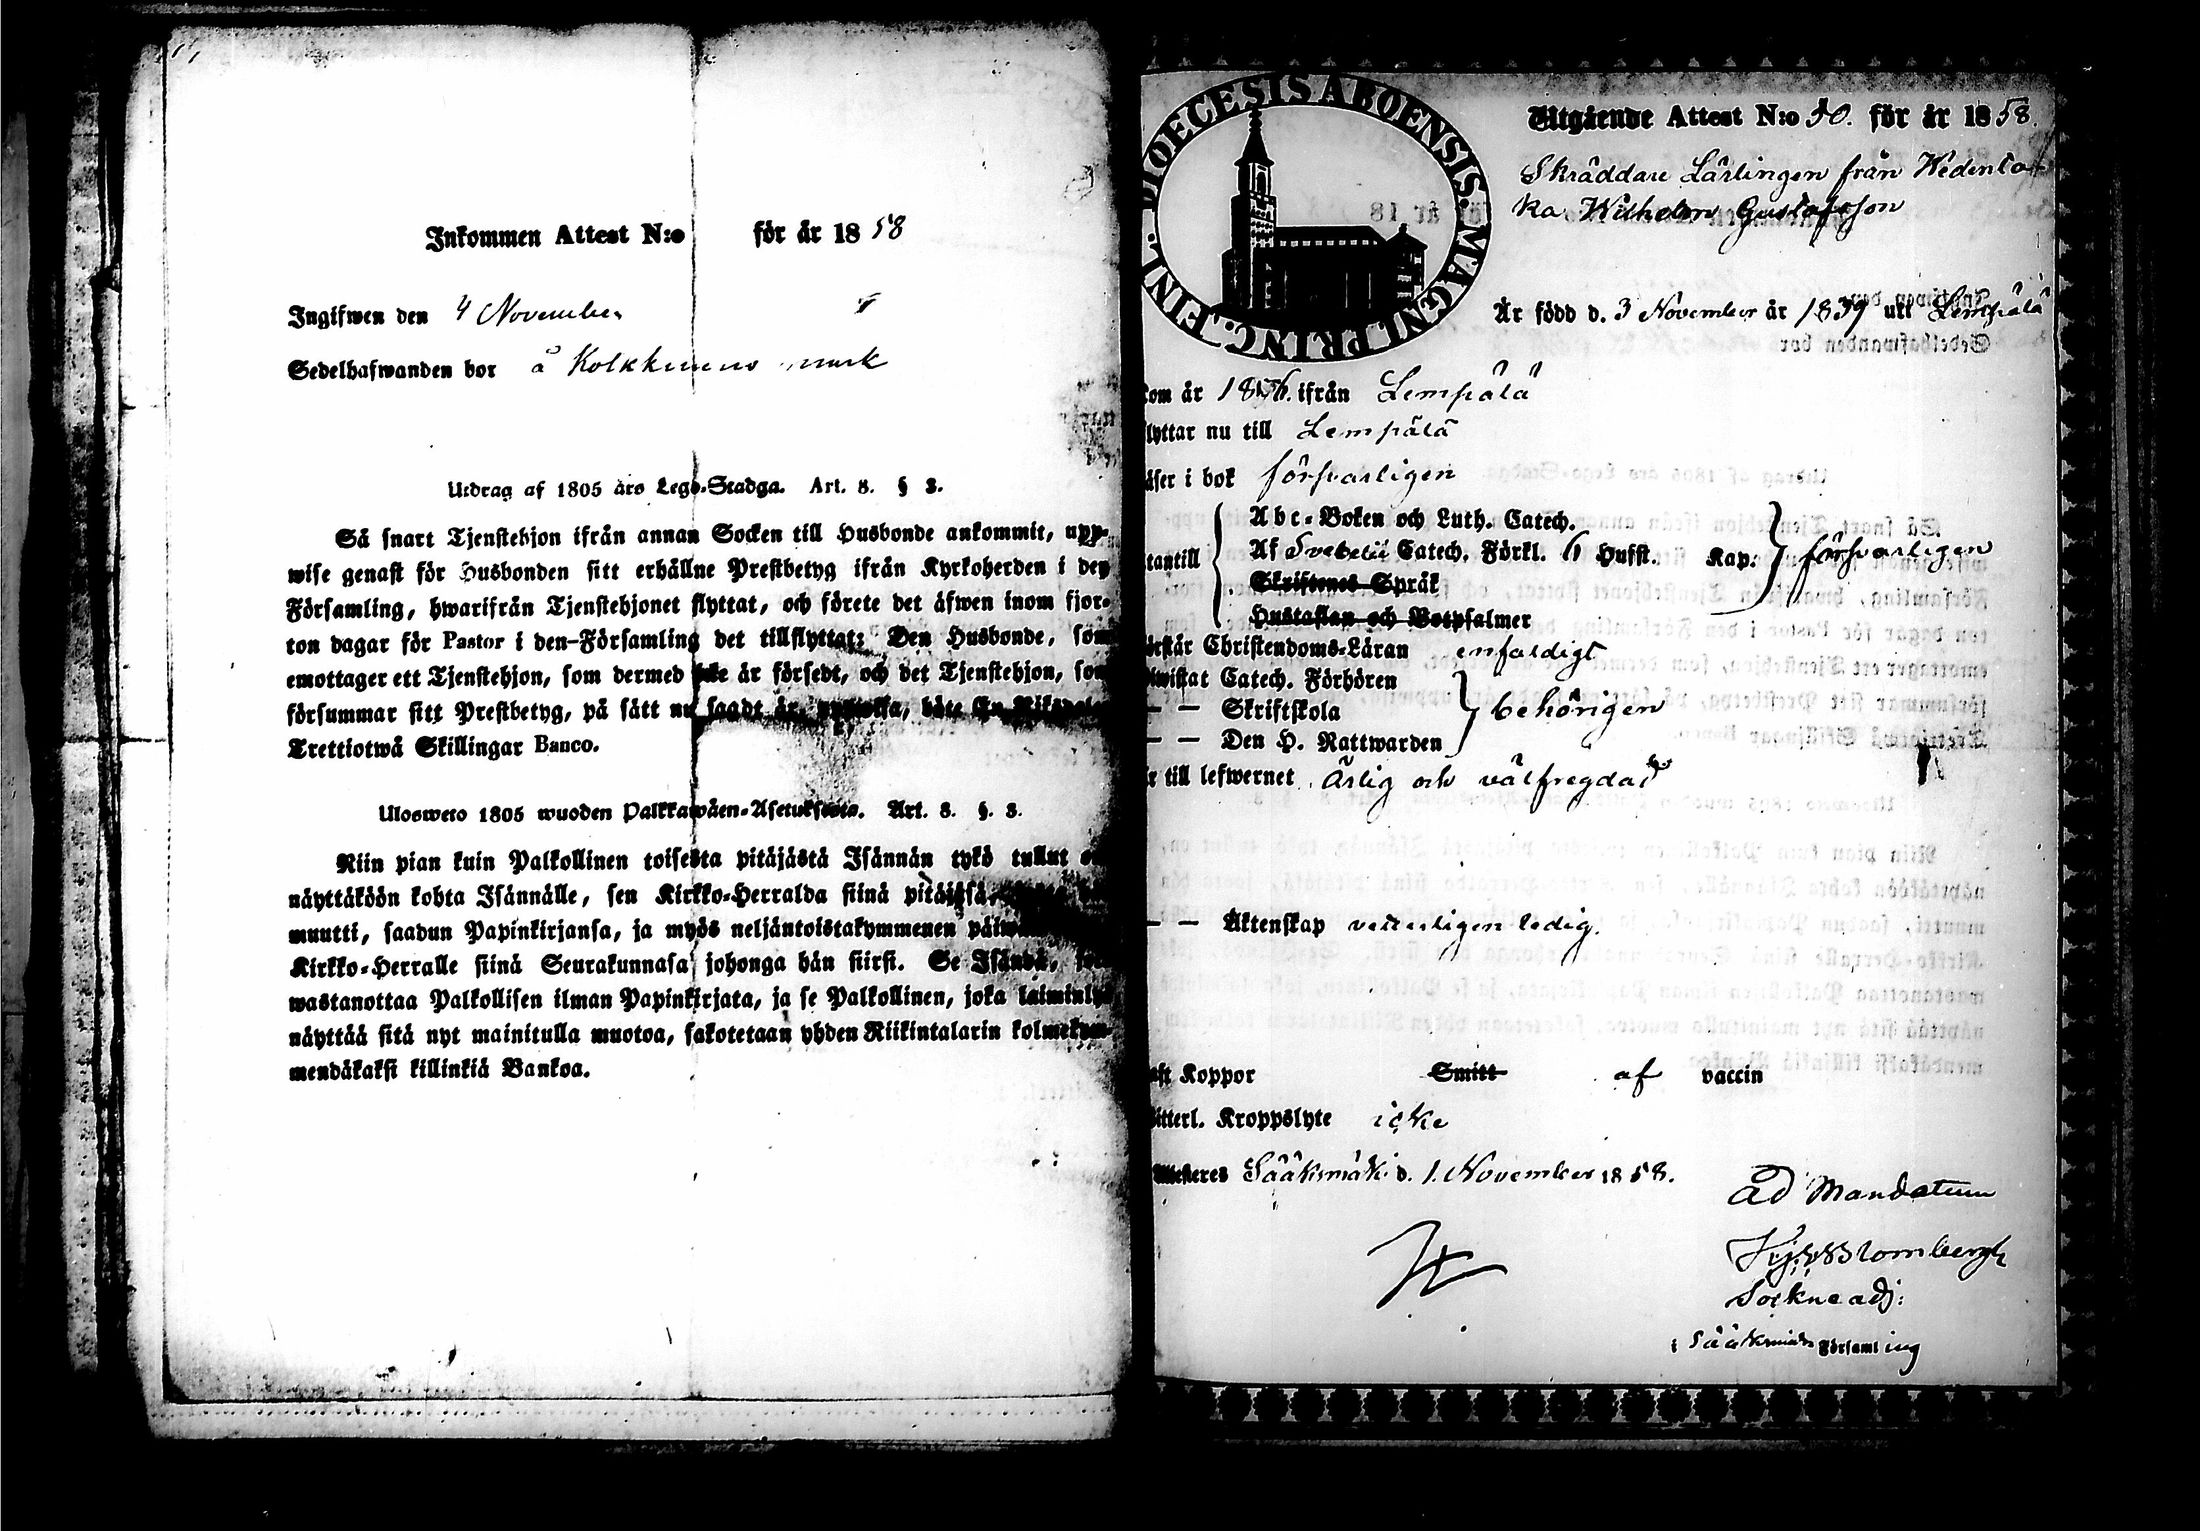 Inkommen Attest N:o för år 1858
Ingifwen den 4 November
Sedelhafwanden bor å Kolkkimens mark
Utdrag af 1805 års Lego-Stadga. Art. 8. § 3.
Så snart Tjenstehjon ifrån annan Socken till Husbonde ankommit, upp-
wise genast för Husbonden sitt erhållne Prestbetyg ifrån Kyrkoherden i den
Församling, hwarifrån Tjenstehjonet flyttat, och förete det äfwen inom fjor-
ton dagar för Pastor i den Församling det tillflyttat: Den Husbonde, som
emottager ett Tjenstehjon, som dermed icke är försedt, och det Tjenstehjon, som
försummar sitt Prestbetyg, på sätt nu sagdt är, uppwisa, böte En Riksdaler
Trettiotwå Skillingar Banco.
Ulosweto 1805 wuoden Palkkawäen-Asetuksesta. Art. 8. §. 3.
Niin pian kuin Palkollinen toisesta pitäjästä Isännän tykö tullut on,
näyttäköön kohta Isännälle, sen Kirkko-Herralda siinä pitäjäsä,
muutti, saadun Papinkirjansa, ja myös neljäntoistakymmenen päiwän
Kirkko-Herralle siinä Seurakunnasa johonga hän siirsi. Se Isändä, joka
wastanottaa Palkollisen ilman Papinkirjata, ja se Palkollinen, joka laiminlyö
näyttää sitä nyt mainitulla muotoa, sakotetaan yhden Riikintalarin kolmekym-
mendäkaksi killinkiä Bankoa.
DIOECESIS ABOENSIS. MAGNI PRINC. FINL.
Utgående Attest N:o 50. för år 1858.
Skräddare Lärlingen från Wedento
ka Wilhelm Gustafsson
Är född d. 3 November år 1839 uti Lempälä
kom år 1856. ifrån Lempälä
flyttar nu till Lempälä
läser i bok försvarligen
Abc-Boken och Luth. Catech.
utantill Af Svebelii Catech. Förkl. 6 Hufst. Kap. försvarligen
Skriftenes Språk
Hustaflan och Botpsalmer
förstår Christendoms-Läran enfaldigt
biwistat Catech. Förhören
— — Skriftskola behörigen
— — Den H. Nattwarden
är till lefwernet ärlig och välfregdad
— — Äktenskap vetterligen ledig.
haft Koppor Smitt af vaccin
witterl. Kroppslyte icke
Attesteres Sääksmäki d. 1. November 1858.
ad Mandatum
Blombergh
Sockne adj:
i Sääksmäki Församling